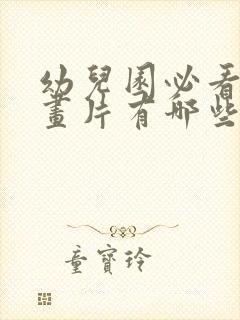 幼兒園必看
畫片有哪些
童寶玲